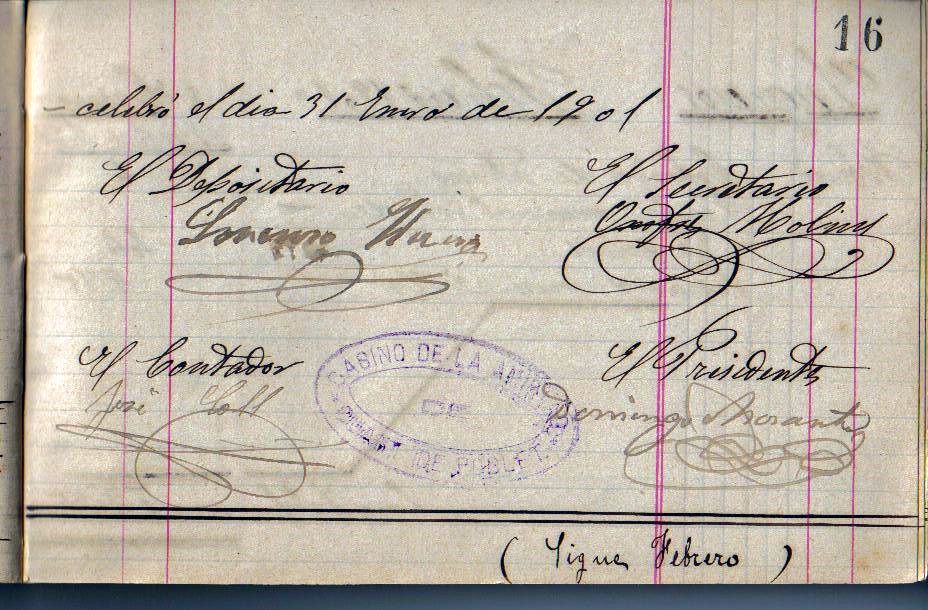 16
celebró el dia 31 Enero de 1901
El Depositario
El Secretario
Lorenzo
Molins
CASINO DE LA
DE
DE POBLET
El Contador
El Presidente
José Coll
Domingo Morante
(Sigue Febrero)